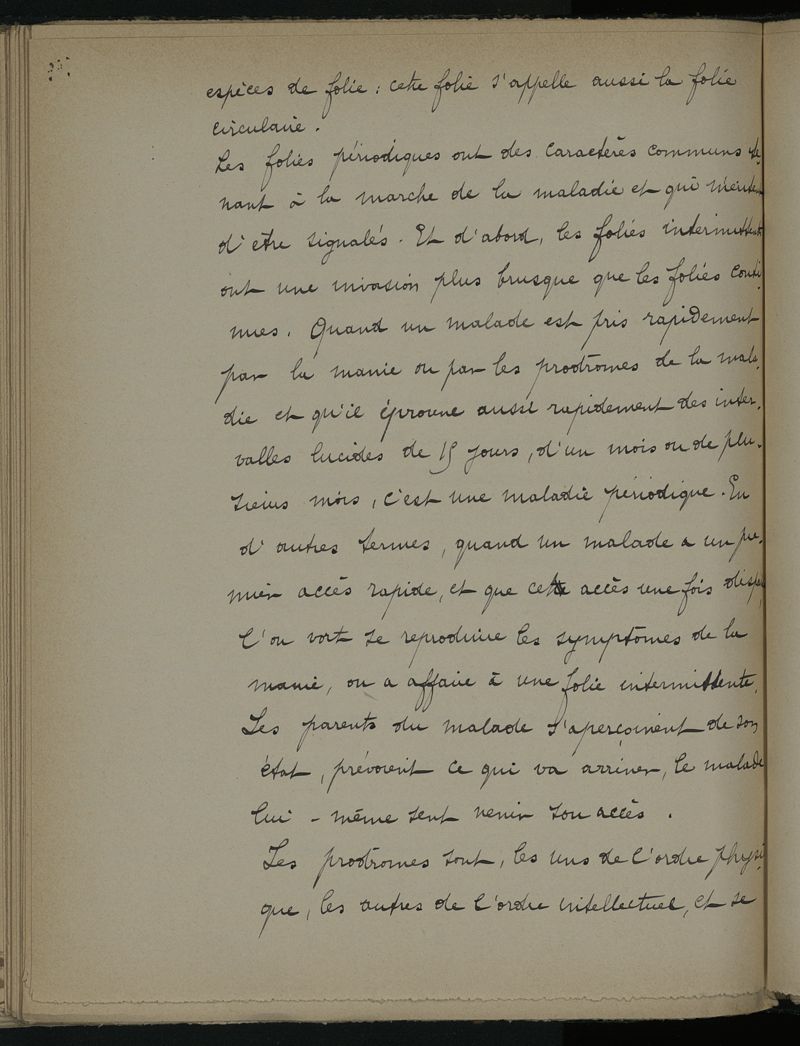 espèces de folie : cette folie s'appelle aussi la folie
circulaire.
Les folies périodiques ont des caractères communs te,
nant à la marche de la maladie et qui méritent
d'être signalés. Et d'abord, les folies intermittentes
ont une invasion plus brusque que les folies conti,
nues. Quand un malade est pris rapidement
par la manie ou par les prodromes de la mala,
die et qu'il éprouve aussi rapidement des inter,
valles lucides de 15 jours, d'un mois ou de plu-
sieurs mois, c'est une maladie périodique. En
d'autres termes, quand un malade a un pre-
mier accès rapide, et que cet accès une fois
l'on voit se reproduire les symptômes de la
manie, on a affaire à une folie intermittente.
Les parents du malade s'aperçoivent de son
état, prévoient ce qui va arriver, le malade
lui-même sent venir son accès.
Les prodromes sont, les uns de l'ordre physi,
que, les autres de l'ordre intellectuel, et se